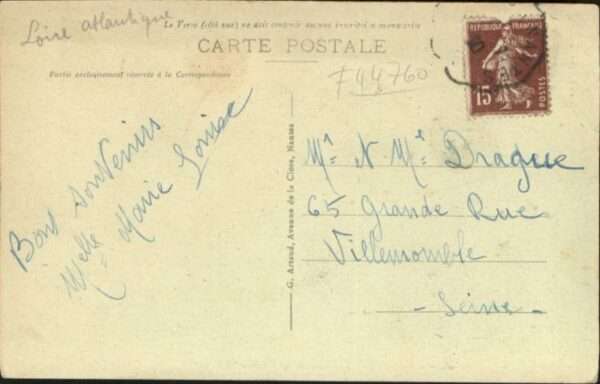 Loire Atlantique
Le Verso (côté vue) ne doit contenir aucune
CARTE POSTALE
Partie exclusivement réservée à la Correspondance
F44760
REPUBLIQUE FRANÇAISE
15
POSTES
Bons Souvenirs
Melle Marie Louise
G. Artaud, Avenue de la Close, Nantes
Mr N Me Drague
65 Grande Rue
Villemomble
- Seine -